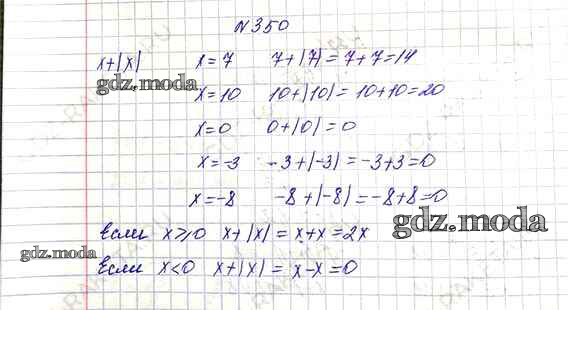 №350
x+|x| x=7 7+|7|=7+7=14
gdz.moda
x=10 10+|10|=10+10=20
x=0 0+|0|=0
x=-3 -3+|-3|=-3+3=0
x=-8 -8+|-8|=-8+8=0
Если x⩾0 x+|x|=x+x=2x
gdz.moda
gdz.moda
Если x<0 x+|x|=x-x=0